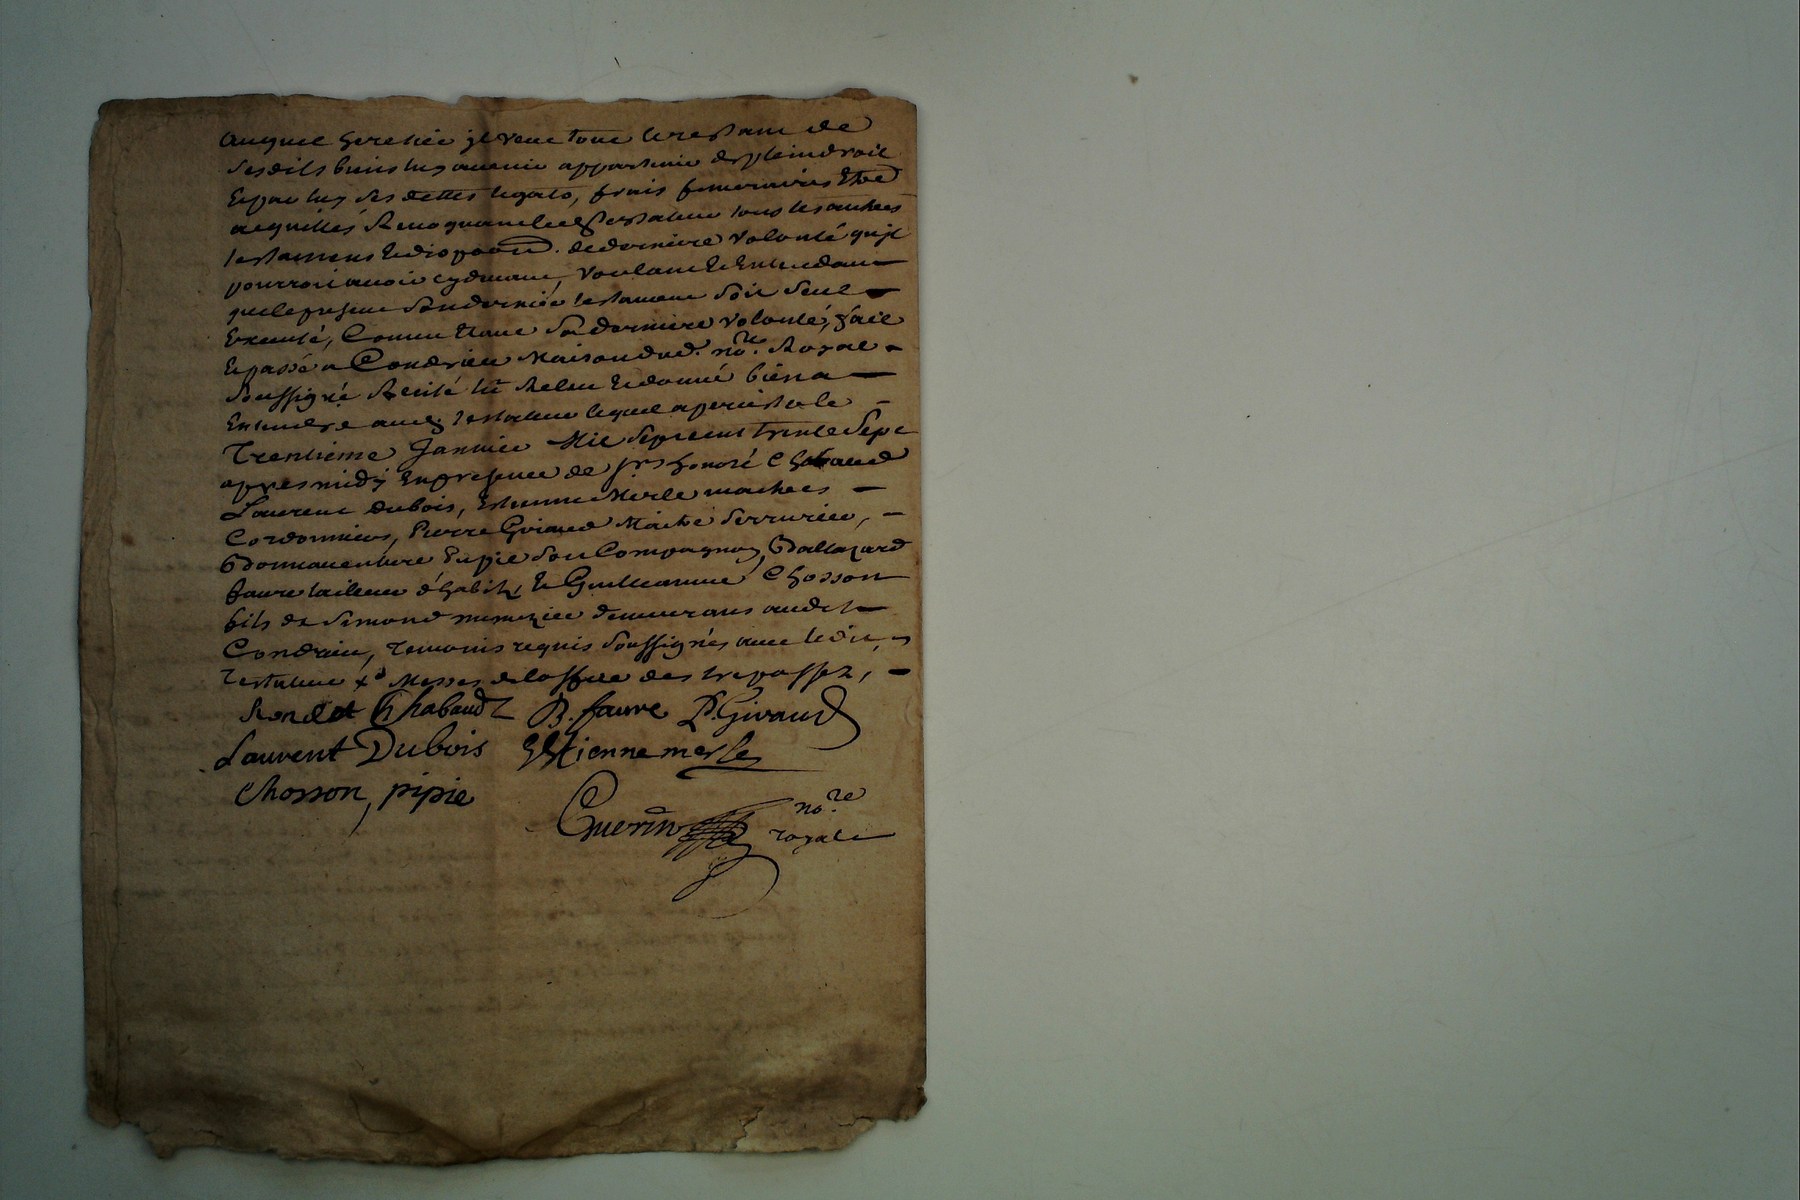 auquel heretiee il veut tout le restant de
ses dits biens luy avenir appartenir de plein droit
Et par luy ses dettes legats, frais funeraires Etre
acquittés Revoquant led testateur tous les autres
testamens Et de derniere volonté qu'il
pourroit avoir cy devant, voulant Et Entendant
que le present son dernier testament soit seul
Executé, Comme Etant sa derniere volonté, fait
Et passé a Condrieu Maison dud. no.re Royal
soussigné Recité lu Relu Et donné bien a
Entendre aud testateur lequel a persisté le
Trentieme Janvier Mil sept cent trente sept
apres midy En presence de srs honoré Chabaud
Laurent dubois, Estienne Merle maitres
Cordonniers, Pierre Giraud Maitre serrurier,
Bonnaventure Pupie son Compagnon, Baltazard
faure tailleur d'habits, Et Guillaume Chosson
fils de Simond menuzier demeurans audit
Condrieu, temoins requis soussignés avec ledit
Testateur x.d Messes des trepassez,
Rondet Chabaud B. faure P. Giraud
Laurent Dubois Estienne merle
Chosson, pipie
Guerin no.re
royal